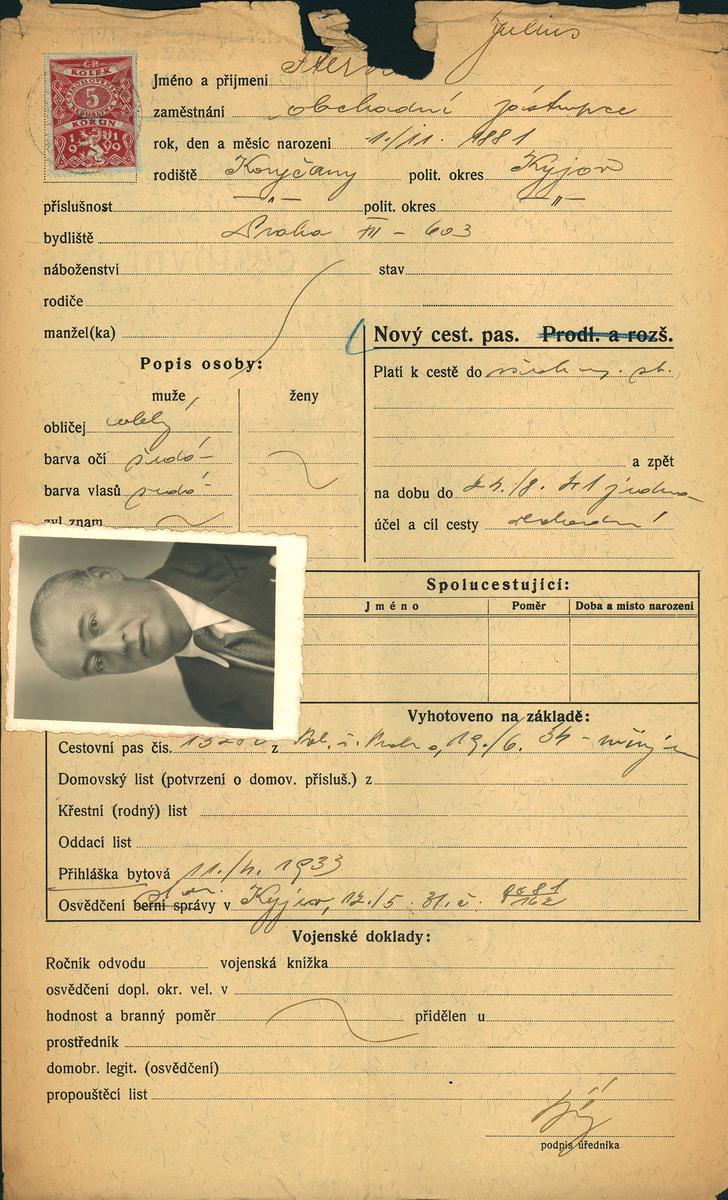 Julius
ČR
KOLEK
5
KORUN
1919
Jméno a příjmení Stern
zaměstnání obchodní zástupce
rok, den a měsíc narození 1./11. 1881
rodiště Koryčany polit. okres Kyjov
příslušnost –„– polit. okres –„–
bydliště Praha VII – 603
náboženství stav
rodiče
manžel(ka)
Nový cest. pas. Prodl. a rozš.
Popis osoby:
muže ženy
obličej oválný
barva očí šedá
barva vlasů šedá
zvl. znam.
Platí k cestě do
a zpět
na dobu do
účel a cíl cesty obchodní
Spolucestující:
Jméno Poměr Doba a místo narození
Vyhotoveno na základě:
Cestovní pas čís. z Pol. ř. Praha, 19./6. 34
Domovský list (potvrzení o domov. přísluš.) z
Křestní (rodný) list
Oddací list
Přihláška bytová 11./4. 1933
Osvědčení berní správy v Kyjov, 12./5. 31. č.
Vojenské doklady:
Ročník odvodu vojenská knížka
osvědčení dopl. okr. vel. v
hodnost a branný poměr přidělen u
prostředník
domobr. legit. (osvědčení)
propouštěcí list
podpis úředníka